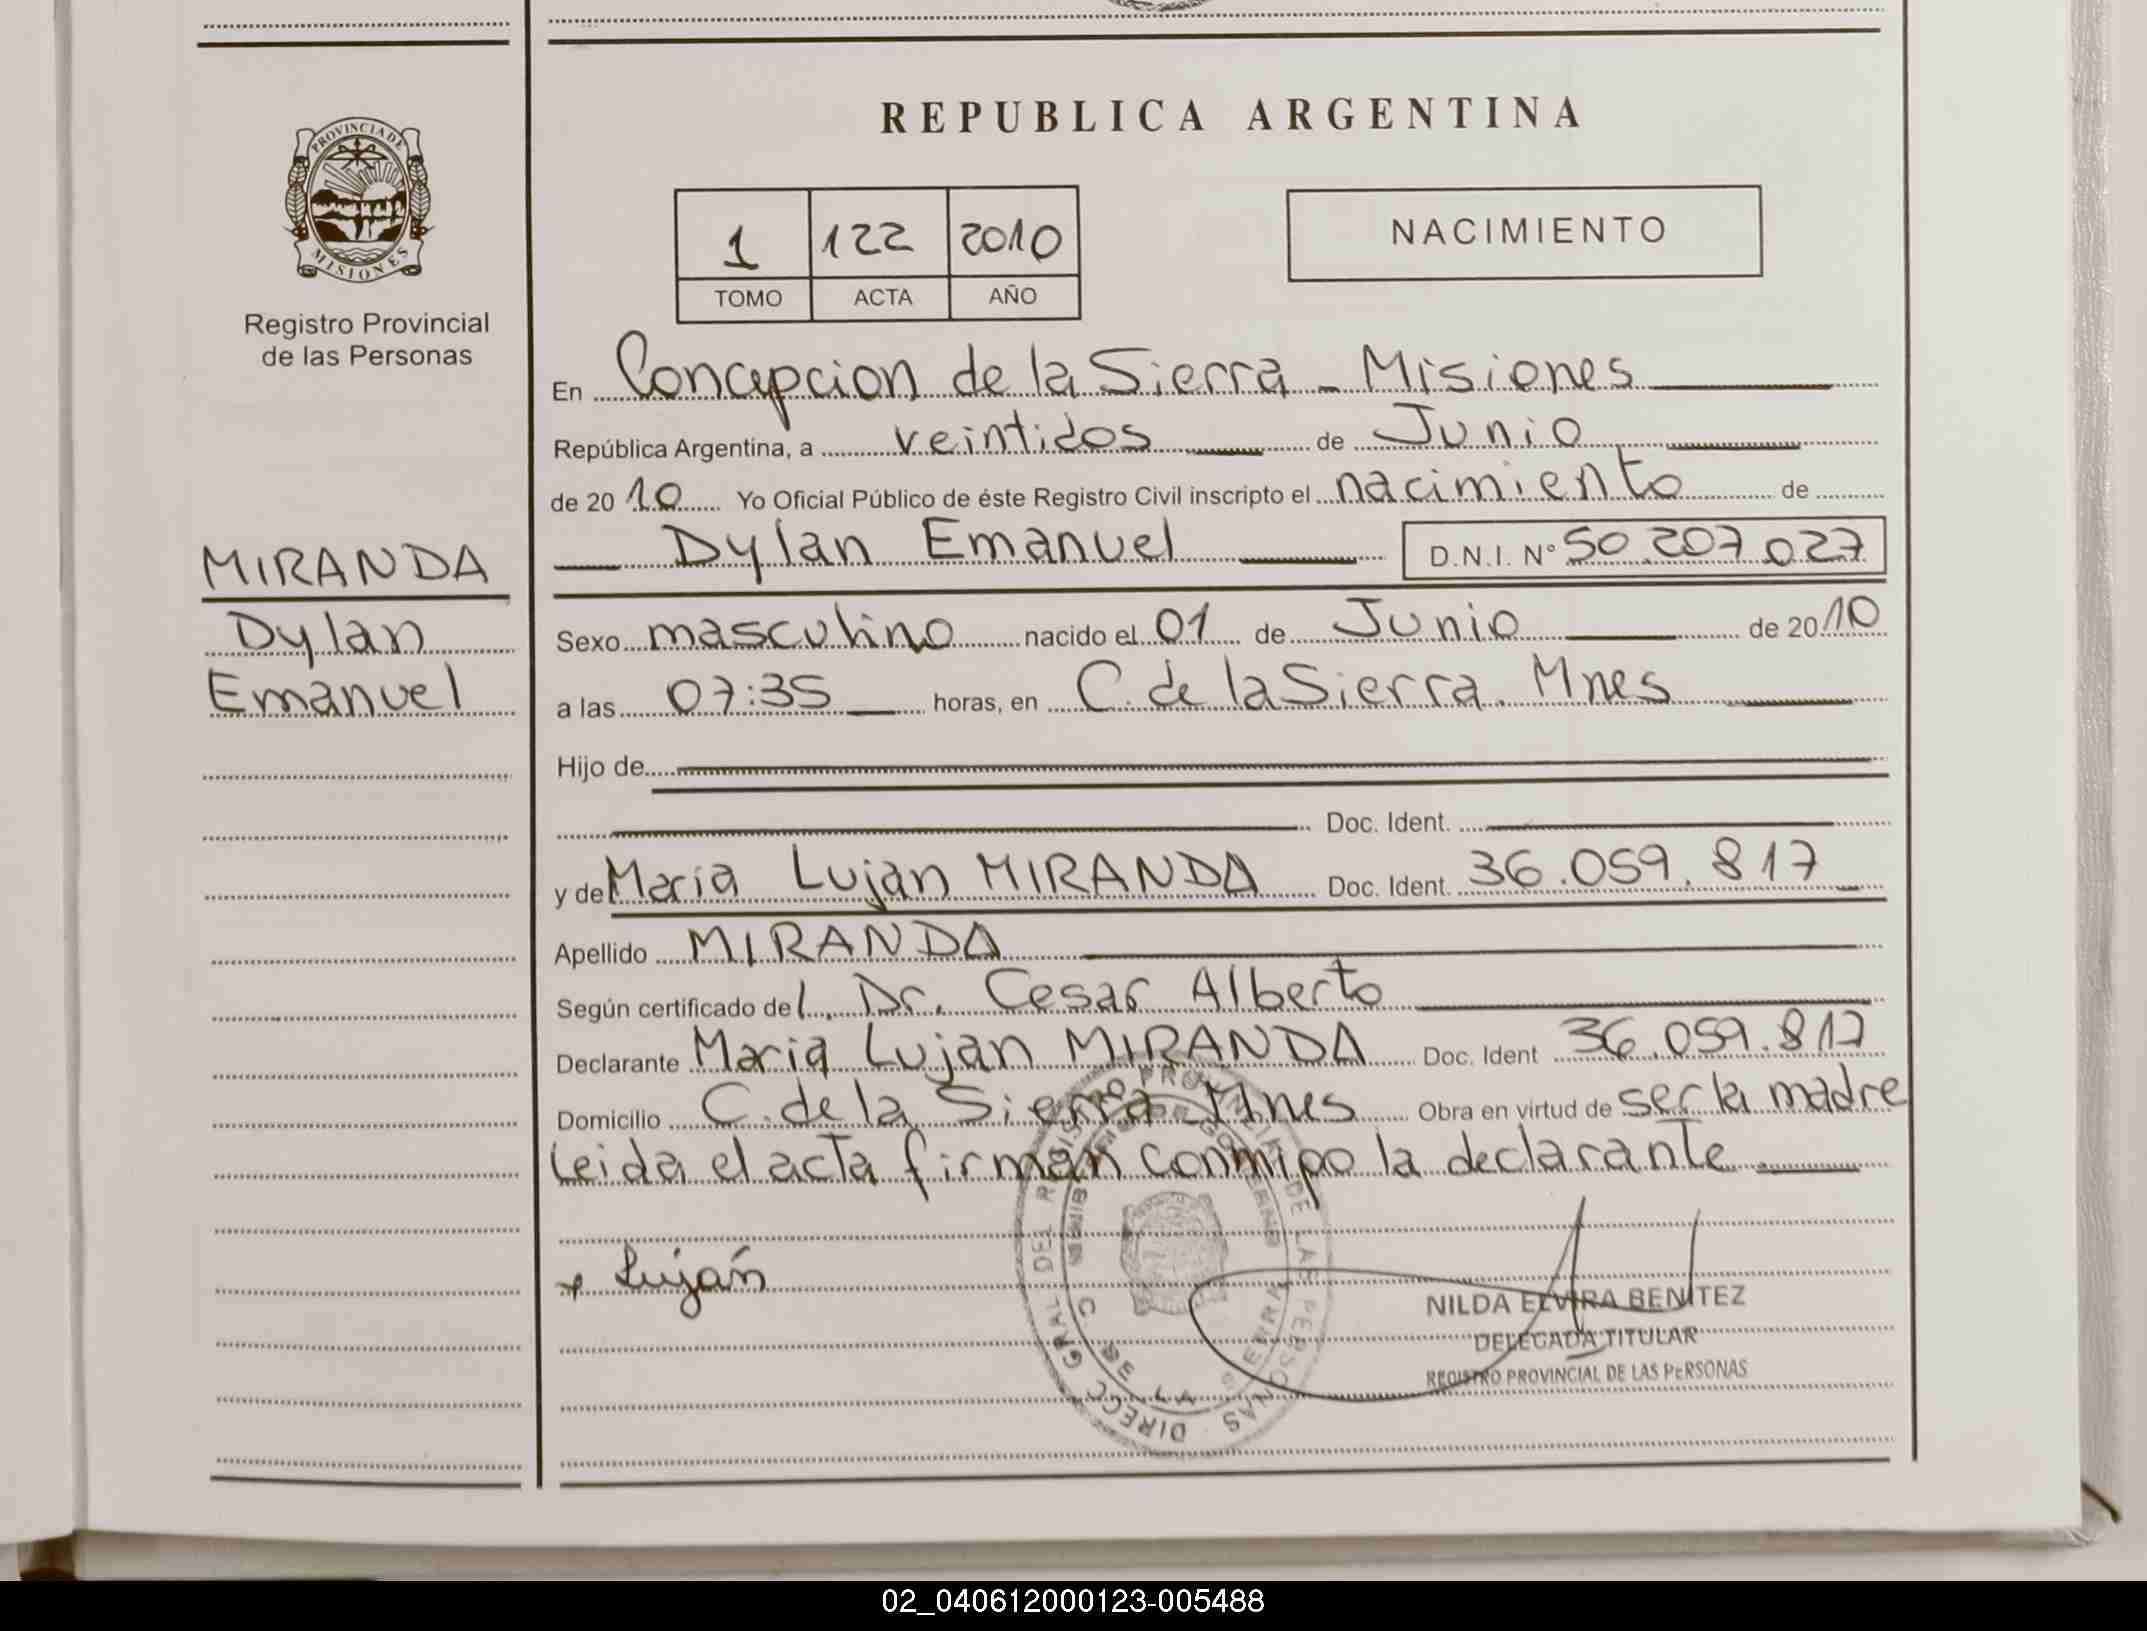 PROVINCIA DE
MISIONES
Registro Provincial
de las Personas
MIRANDA
Dylan
Emanuel
REPUBLICA ARGENTINA
1 122 2010
TOMO ACTA AÑO
NACIMIENTO
En Concepcion de la Sierra - Misiones
República Argentina, a veintidos de Junio
de 2010 Yo Oficial Público de éste Registro Civil inscripto el nacimiento de
Dylan Emanuel D.N.I. Nº 50.207.027
Sexo masculino nacido el 01 de Junio de 2010
a las 07:35 horas, en C. de la Sierra. Mnes
Hijo de
Doc. Ident.
y de Maria Lujan MIRANDA Doc. Ident. 36.059.817
Apellido MIRANDA
Según certificado del Dr. Cesar Alberto
Declarante Maria Lujan MIRANDA Doc. Ident 36.059.817
Domicilio C. de la Sierra Mnes Obra en virtud de ser la madre
Leida el acta firman conmigo la declarante
DIRECC. GRAL. DEL REGISTRO PROVINCIAL DE LAS PERSONAS
C. DE LA SIERRA
+ Luján
NILDA ELVIRA BENITEZ
DELEGADA TITULAR
REGISTRO PROVINCIAL DE LAS PERSONAS
02_040612000123-005488